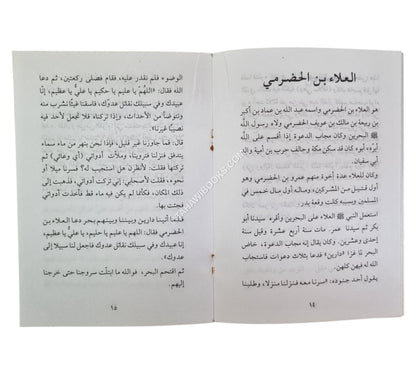 العلاء بن الحضرمي
هو العلاء بن الحضرمي واسمه عبد الله بن عماد بن أكبر
بن ربيعة بن مالك بن عويف الحضرمي ولاه رسول الله
ﷺ البحرين وكان مجاب الدعوة إذا أقسم على الله
أبره. أبوه كان قد سكن مكة وحالف حرب بن أمية والد
أبي سفيان.
وكان للعلاء عدة أخوة منهم عمرو بن الحضرمي وهو
أول قتيل من المشركين، وماله أول مال خمس في
المسلمين وبسببه كانت وقعة بدر.
استعمل النبي ﷺ العلاء على البحرين وأقره سيدنا أبو
بكر ثم سيدنا عمر. مات سنة أربع عشرة وقيل سنة
إحدى وعشرين. وكان يقال إنه مجاب الدعوة، خاض
البحر لما غزا «دارين» فدعا بثلاث دعوات فاستجاب
الله له فيهن كلهن.
يقول أحد جنوده: «سرنا معه فنزلنا منزلا، وطلبنا
١٤
الوضوء فلم نقدر عليه، فقام فصلى ركعتين، ثم دعا
الله فقال: «اللهم يا عليم يا حكيم يا علي يا عظيم، إنا
عبيدك وفي سبيلك نقاتل عدوك، فاسقنا غيثا نشرب منه
ونتوضأ من الأحداث، وإذا تركناه فلا تجعل لأحد فيه
نصيبا غيرنا».
قال: فما جاوزنا غير قليل، فإذا نحن بنهر من ماء سماء
يتدفق فنزلنا فتروينا، وملأت أدواتي (أي وعائي) ثم
تركتها، فقلت: لأنظرن هل استجيب له؟ فسرنا ميلا أو
نحوه، فقلت لأصحابي: إني نسيت أدواتي، فذهبت إلى
ذلك المكان، فكأنما لم يكن فيه ماء قط فأخذت أدواتي
فجئت بها.
فلما أتينا دارين وبيننا وبينهم بحر دعا العلاء بن
الحضرمي فقال: اللهم يا عليم يا حليم، يا علي يا عظيم،
إنا عبيدك وفي سبيلك نقاتل عدوك فاجعل لنا سبيلا إلى
عدوك».
ثم اقتحم البحر، فوالله ما ابتلت سروجنا حتى خرجنا
إليهم.
١٥